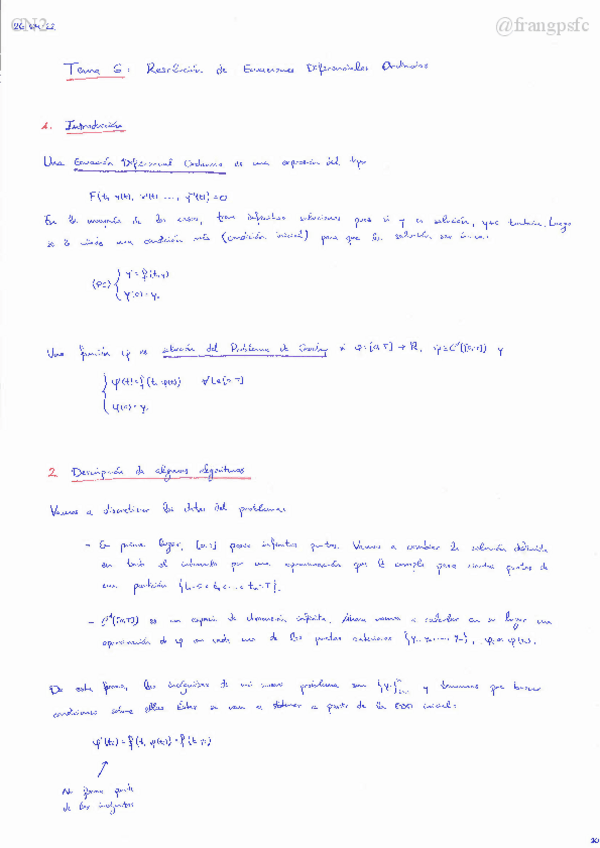 CN2
@frangpsfc
Tema 6: Resolución de Ecuaciones Diferenciales Ordinarias
1. Introducción
Una Ecuación Diferencial Ordinaria es una expresión del tipo
F(t, y(t), y'(t), ..., y^n(t)) = 0
En la mayoría de los casos, tiene infinitas soluciones pues si y es solución, y+c también. Luego
se le añade una condición más (condición inicial) para que la solución sea única:
(PC) { y' = f(t, y)
y(0) = y₀
Una función φ es solución del Problema de Cauchy si φ: [0, T] → ℝ, φ ∈ C¹([0, T]) y
{ φ'(t) = f(t, φ(t)) ∀t ∈ [0, T]
φ(0) = y₀
2. Descripción de algunos algoritmos
Vamos a discretizar los datos del problema:
- En primer lugar, [0, T] posee infinitos puntos. Vamos a cambiar la solución definida
en todo el intervalo por una aproximación que lo cumpla para ciertos puntos de
una partición {t₀ = 0 < t₁ < ... < tₙ = T}.
- C¹([0, T]) es un espacio de dimensión infinita. Ahora vamos a calcular en su lugar una
aproximación de φ en cada uno de los puntos anteriores {y₀, y₁, ..., yₙ},
De esta forma, las incógnitas de mi nuevo problema son {yᵢ} y tenemos que buscar
condiciones sobre ellas. Estas se van a obtener a partir de la EDO inicial:
φ'(tᵢ) = f(tᵢ, φ(tᵢ)) ≈ f(tᵢ, yᵢ)
No forma parte
de las incógnitas